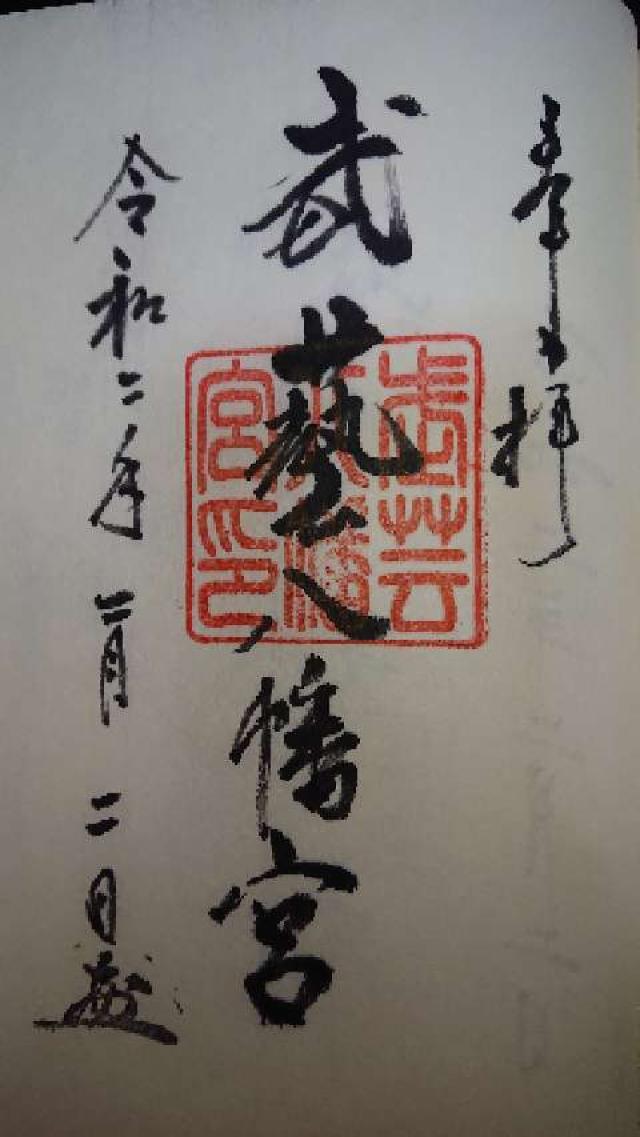 奉拝
武藝八幡宮
武芸八幡宮印
令和二年二月二日